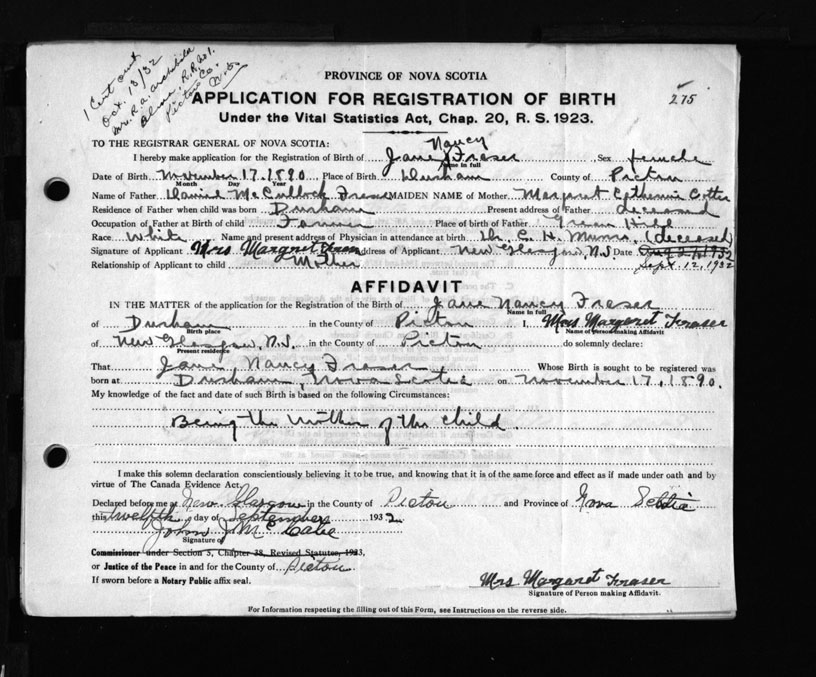 1 Cert out
Oct. 13/32
Mrs. R. A. Archibald
Alma, R.R. No 1.
Pictou Co.
N.S.
PROVINCE OF NOVA SCOTIA
275
APPLICATION FOR REGISTRATION OF BIRTH
Under the Vital Statistics Act, Chap. 20, R. S. 1923.
TO THE REGISTRAR GENERAL OF NOVA SCOTIA:
Nancy
I hereby make application for the Registration of Birth of Jane Fraser, Sex female
Name in full
Date of Birth November 17, 1890 Place of Birth Durham County of Pictou
Month Day Year
Name of Father Daniel McCullock Fraser MAIDEN NAME of Mother Margaret Catherine
Residence of Father when child was born Durham Present address of Father deceased
Occupation of Father at Birth of child Farmer Place of birth of Father Green Hill
Race White Name and present address of Physician in attendance at birth Dr. (deceased)
Signature of Applicant Mrs Margaret Fraser Address of Applicant New Glasgow, N.S Date
Relationship of Applicant to child Mother Sept. 12, 1932
AFFIDAVIT
IN THE MATTER of the application for the Registration of the Birth of Jane Nancy Fraser
Name in full
of Durham in the County of Pictou I, Mrs Margaret Fraser
Birth place Name of Person making Affidavit
of New Glasgow, N.S. in the County of Pictou do solemnly declare:
Present residence
That Jane Nancy Fraser Whose Birth is sought to be registered was
born at Durham, Nova Scotia on November 17, 1890.
My knowledge of the fact and date of such Birth is based on the following Circumstances:
Being the Mother of the child.
I make this solemn declaration conscientiously believing it to be true, and knowing that it is of the same force and effect as if made under oath and by
virtue of The Canada Evidence Act.
Declared before me at New Glasgow in the County of Pictou and Province of Nova Scotia
this twelfth day of September 1932
John J Mc
Signature of
Commissioner under Section 5, Chapter 38, Revised Statutes, 1923,
or Justice of the Peace in and for the County of Pictou
If sworn before a Notary Public affix seal.
Mrs Margaret Fraser
Signature of Person making Affidavit.
For Information respecting the filling out of this Form, see Instructions on the reverse side.